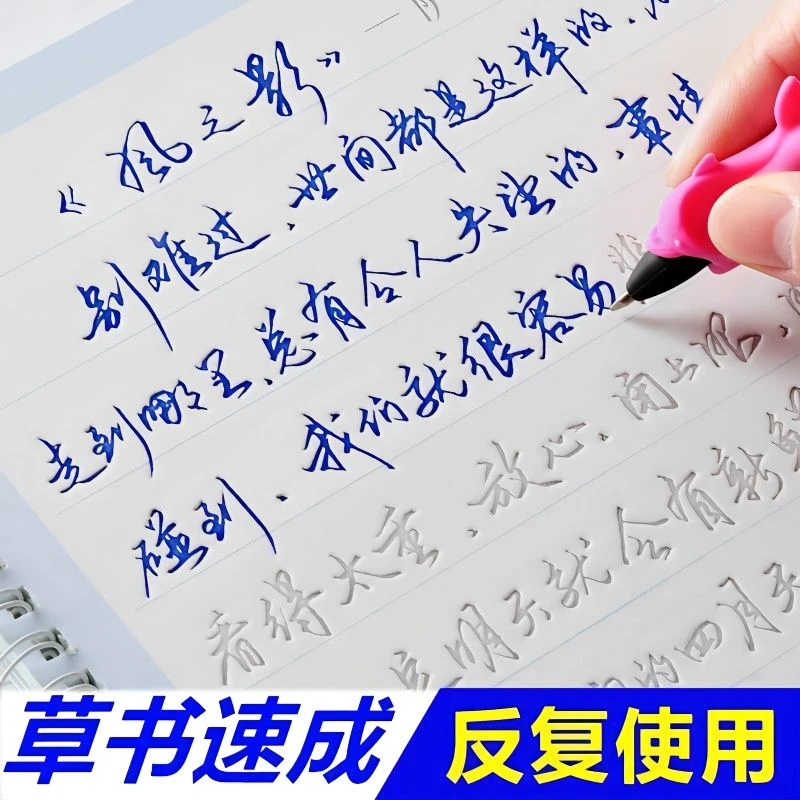 《风之影》
别难过、世间都是这样的、
走到哪里、总有令人失望的、事情
碰到、我们就很容易
看得太重、放心、闭上眼、
明天就会有新
的四月天
草书速成
反复使用